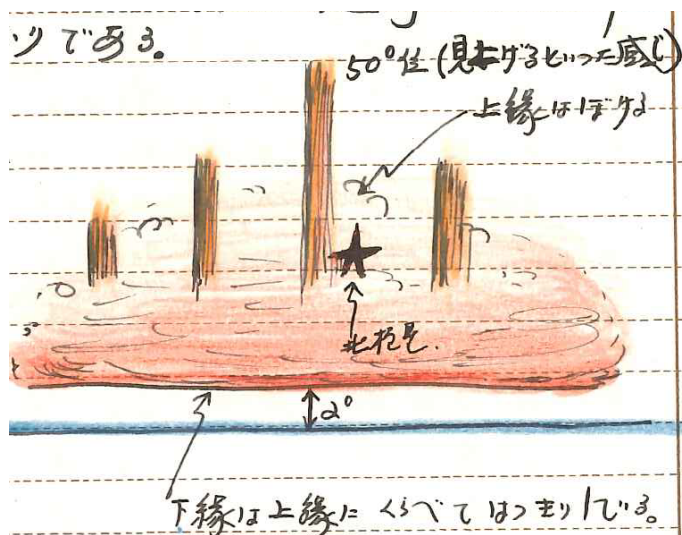 ソリである。
50°位(見上げるといった感じ)
上縁はぼける
北極星.
2°
下縁は上縁にくらべてはっきりしている。